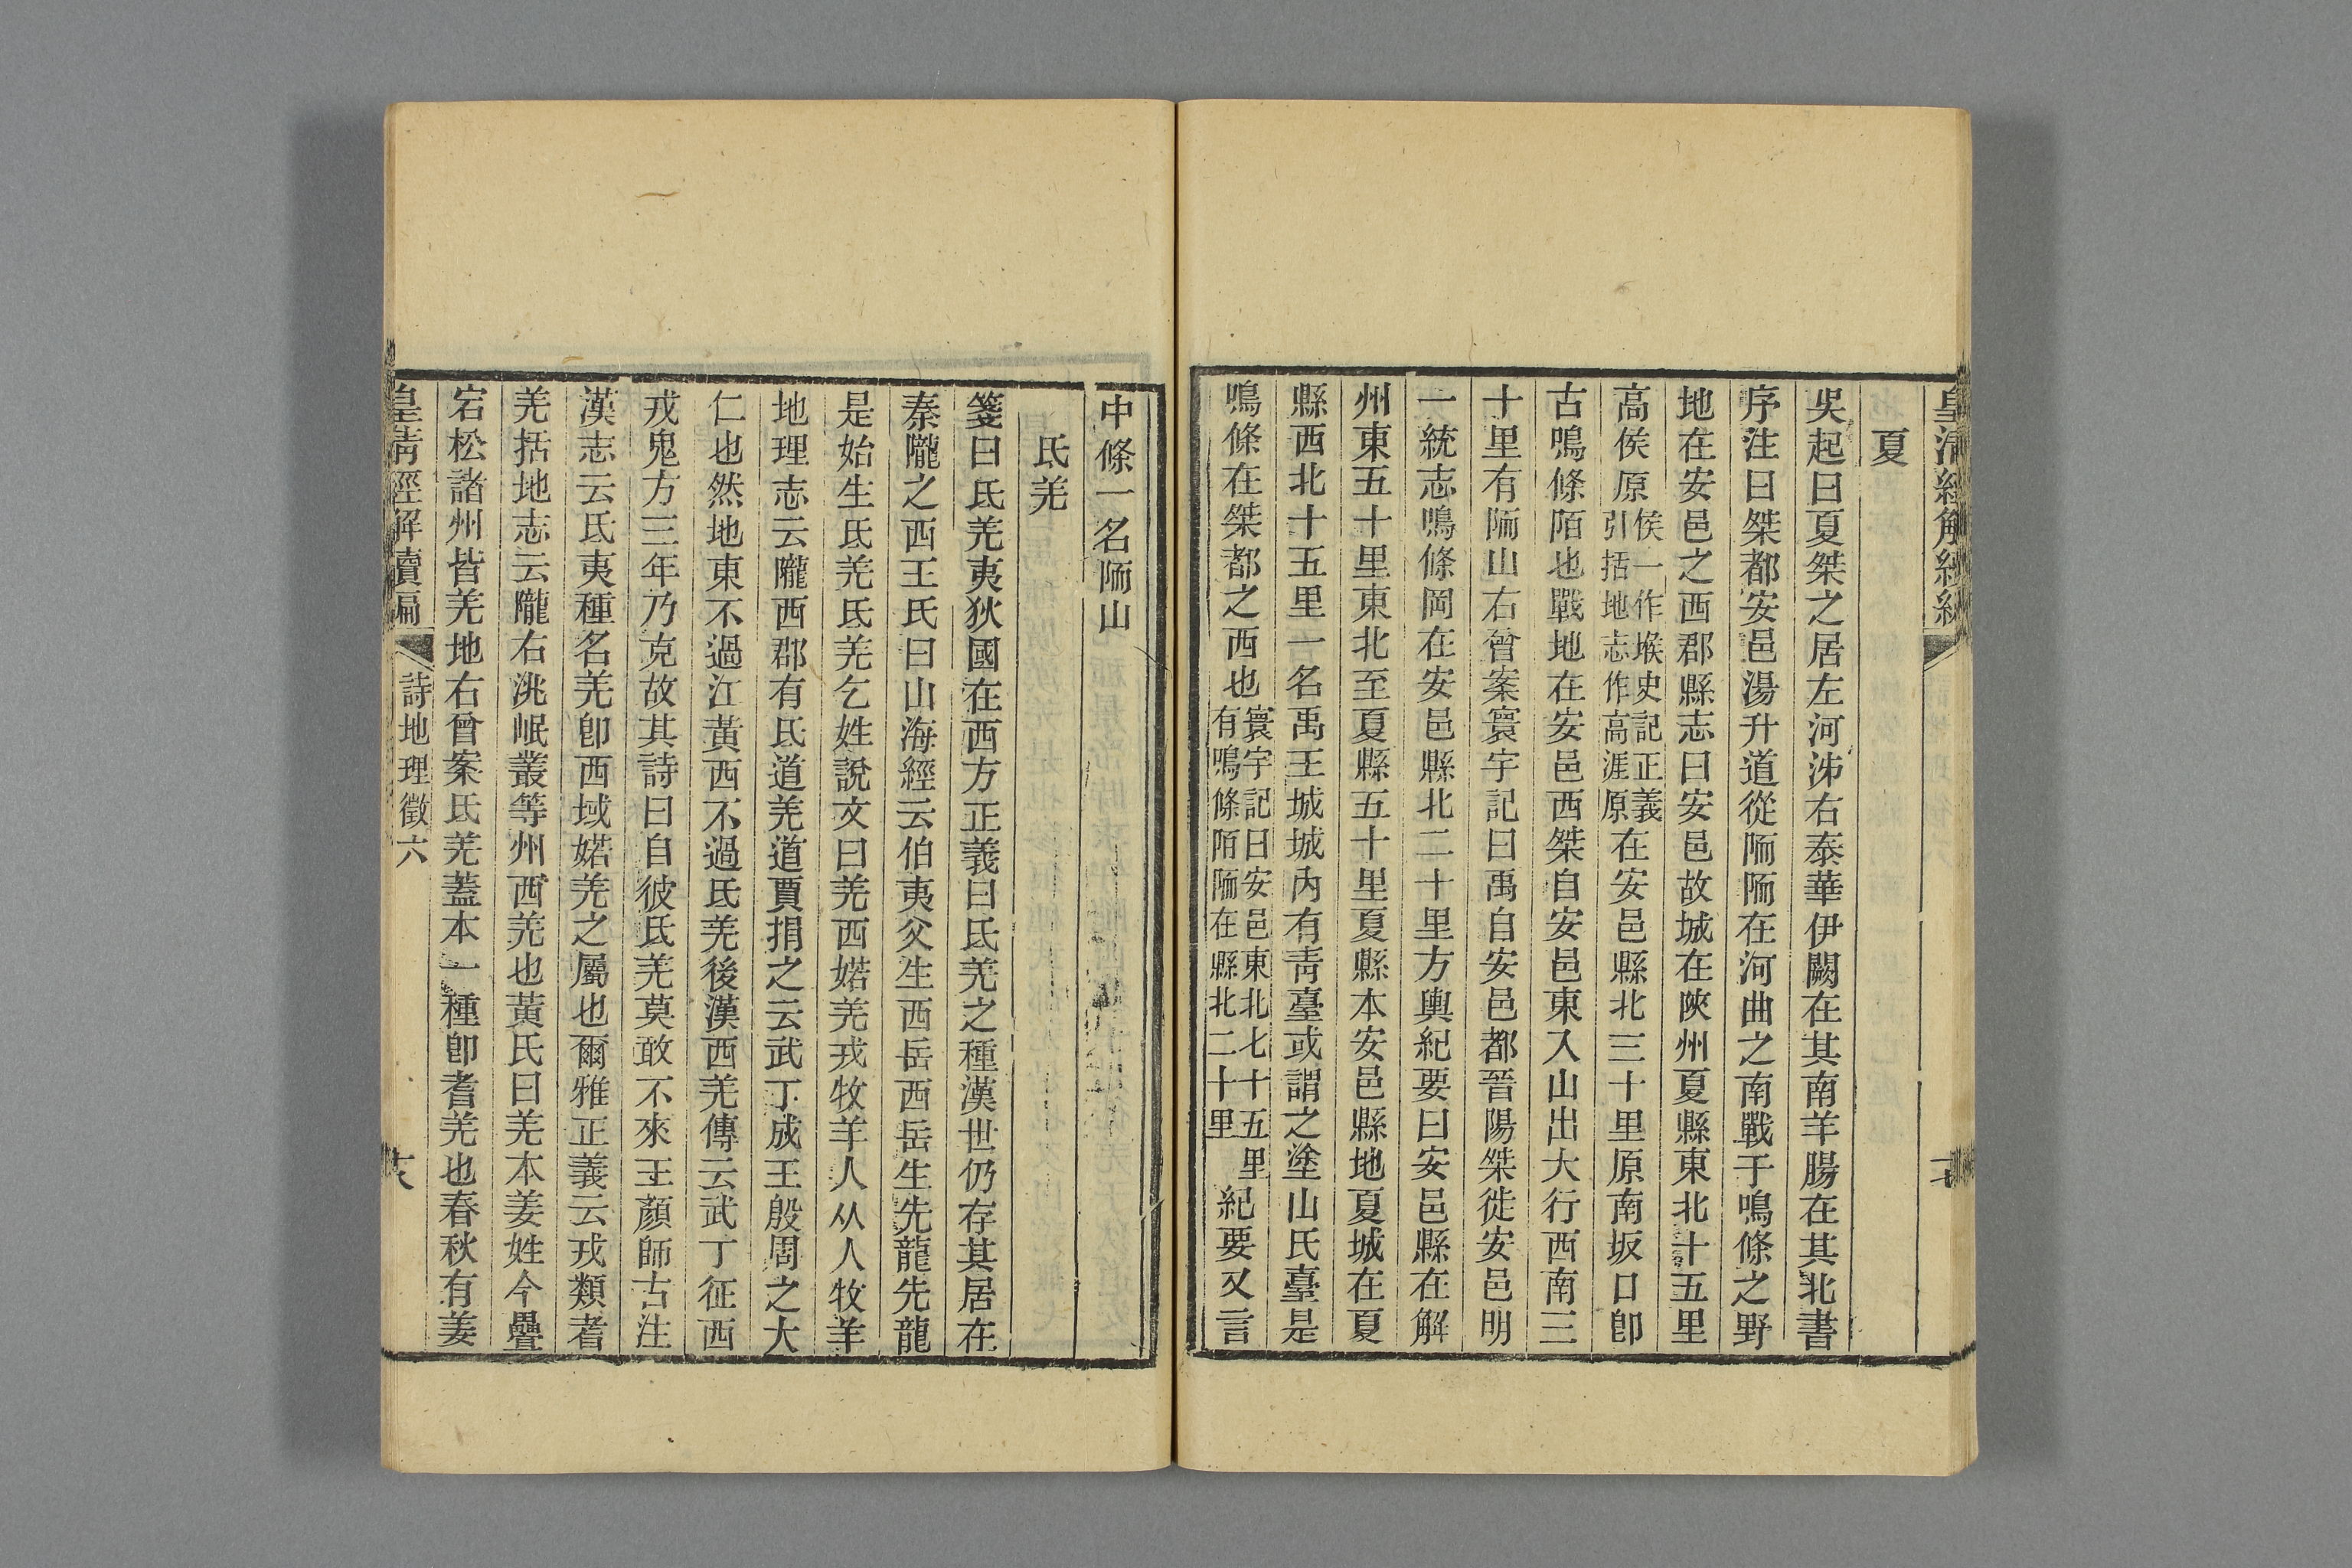 夏
吳起曰夏桀之居左河泲右泰華伊闕在其南羊腸在其北書
序注曰桀都安邑湯升道從陑陑在河曲之南戰于鳴條之野
地在安邑之西郡縣志曰安邑故城在陝州夏縣東北十五里
高侯原侯一作堠史記正義引括地志作高涯原在安邑縣北三十里原南坂口卽
古鳴條陌也戰地在安邑西桀自安邑東入山出大行西南三
十里有陑山右曾案寰宇記曰禹自安邑都晉陽桀徙安邑明
一統志鳴條岡在安邑縣北二十里方輿紀要曰安邑縣在解
州東五十里東北至夏縣五十里夏縣本安邑縣地夏城在夏
縣西北十五里一名禹王城城內有靑臺或謂之塗山氏臺是
鳴條在桀都之西也寰宇記曰安邑東北七十五里有鳴條陌陑在縣北二十里紀要又言
中條一名陑山
氐羌
箋曰氐羌夷狄國在西方正義曰氐羌之種漢世仍存其居在
秦隴之西王氏曰山海經云伯夷父生西岳西岳生先龍先龍
是始生氐羌氐羌乞姓說文曰羌西婼羌戎牧羊人从人牧羊
地理志云隴西郡有氐道羌道賈捐之云武丁成王殷周之大
仁也然地東不過江黃西不過氐羌後漢西羌傳云武丁征西
戎鬼方三年乃克故其詩曰自彼氐羌莫敢不來王顏師古注
漢志云氐夷種名羌卽西域婼羌之屬也爾雅正義云戎類者
羌括地志云隴右洮岷叢等州西羌也黃氏曰羌本姜姓今疊
宕松諸州皆羌地右曾案氐羌蓋本一種卽耆羌也春秋有姜
皇清經解續編
詩地理徵六